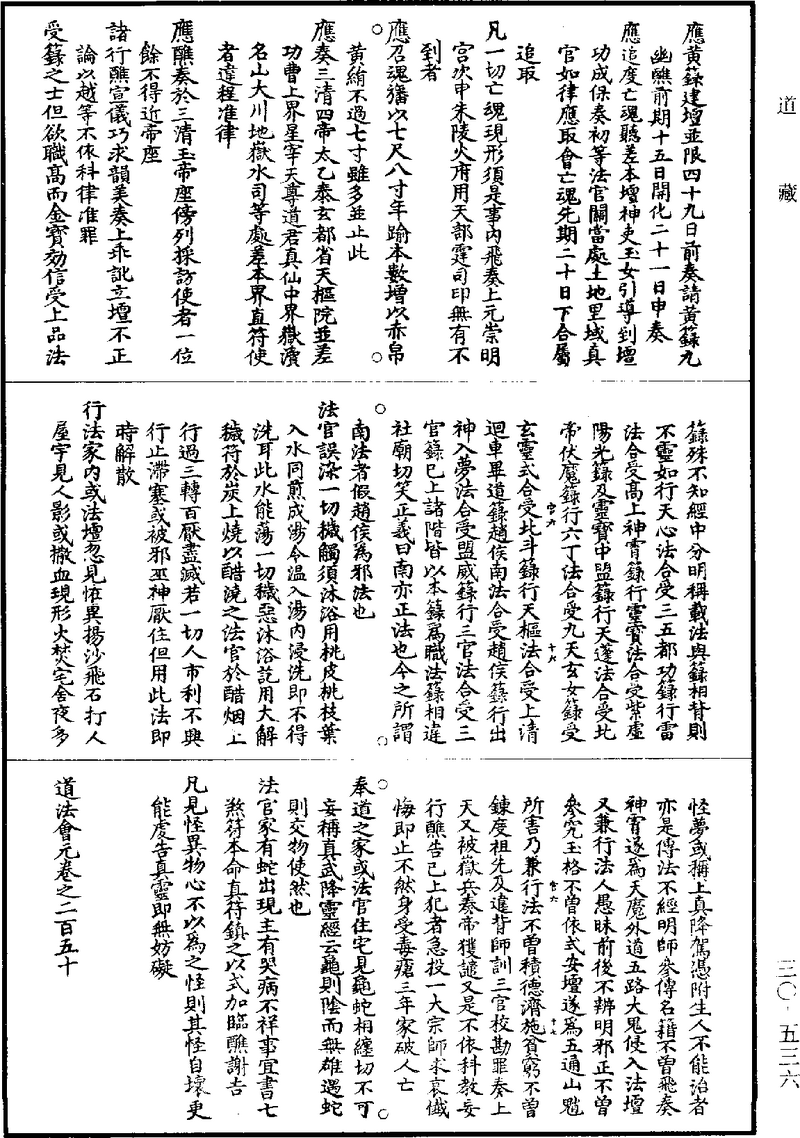 道藏
應黃籙建壇並限四十九日前奏請黃籙九
幽醮前期十五日開化二十一日申奏
應追度亡魂聽差本壇神吏玉女引導到壇
功成保奏初等法官關當處土地里域真
官如律應取會亡魂先期二十日下合屬
追取
凡一切亡魂現形須是事內飛奏上元崇明
宮次申朱陵火府用天部霆司印無有不
到者
應召魂旛以七尺八寸年踰本數增以亦帛
黃綃不過七寸雖多並止此
應奏三清四帝太乙泰玄都省天樞院並差
功曹上界星宰天尊道君真仙中界嶽瀆
名山大川地獄水司等處差本界直符使
者違程准律
應醮奏於三清玉帝座傍列採訪使者一位
餘不得近帝座
諸行醮宣儀巧求韻美奏上乖訛立壇不正
論以越等不依科律准罪
受籙之士但欲職高而金寶効信受上品法
籙殊不知經中分明稱載法與籙相背則
不靈如行天心法合受三五都功籙行雷
法合受高上神霄籙行靈寶法合受紫虛
陽光籙及靈寶中盟籙行天蓬法合受北
帝伏魔籙行六丁法合受九天玄女籙受
玄靈式合受北斗籙行天樞法合受上清
迴車畢道籙趙侯南法合受趙侯籙行出
神入夢法合受盟威籙行三官法合受三
官籙已上諸階皆以本籙為職法籙相違
社廟切笑正義曰南亦正法也今之所謂
南法者假趙侯為邪法也
法官誤染一切穢觸須沐浴用桃皮桃枝葉
入水同煎成湯令溫入湯內浸洗即不得
洗耳此水能蕩一切穢惡沐浴訖用大解
穢符於炭上燒以醋澆之法官於醋烟上
行過三轉百厭盡滅若一切人市利不興
行止滯塞或被邪巫神厭住但用此法即
時解散
行法家內或法壇忽見恠異揚沙飛石打人
屋宇見人影或撒血現形火焚宅舍夜多
怪夢或稱上真降駕憑附生人不能治者
亦是傳法不經明師參傳名籍不曾飛奏
神霄遂為天魔外道五路大鬼侵入法壇
又兼行法人愚昧前後不辨明邪正不曾
參究玉格不曾依式安壇遂為五通山魈
所害乃兼行法不曾積德濟施貧窮不曾
鍊度祖先及違背師訓三官校勘罪奏上
天又被嶽兵奏帝獲譴又是不依科教妄
行醮告已上犯者急投一大宗師求哀懺
悔即止不然身受毒瘡三年家破人亡
奉道之家或法官住宅見龜蛇相纏切不可
妄稱真武降靈經云龜則陰而無雄遇蛇
則交物使然也
法官家有蛇出現主有哭病不祥事宜書七
煞符本命真符鎮之以式加臨醮謝吉
凡見怪異物心不以為之怪則其怪自壞更
能虔告真靈即無妨礙
道法會元卷之二百五十
三〇-五三六